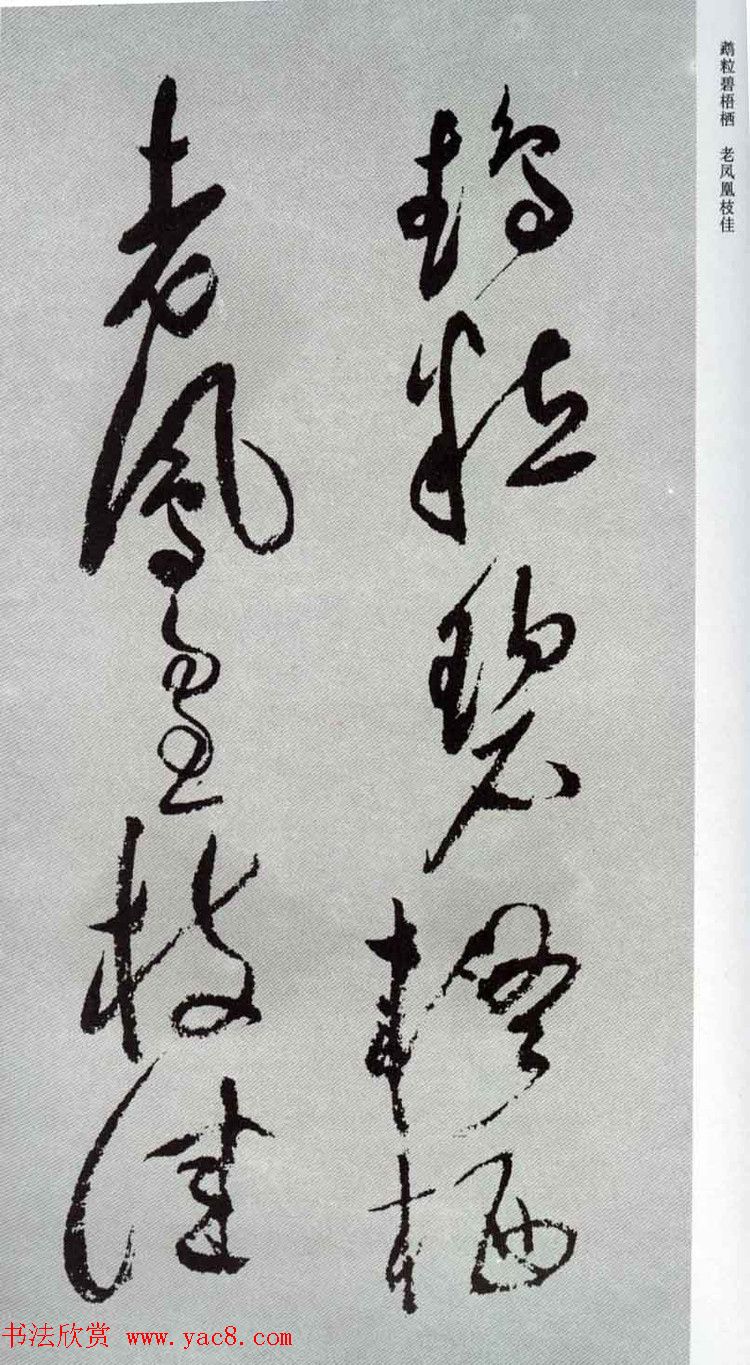 鹉粒碧梧栖 老凤凰枝佳
鵡粒碧梧栖
老鳳凰枝佳
书法欣赏 www.yac8.com